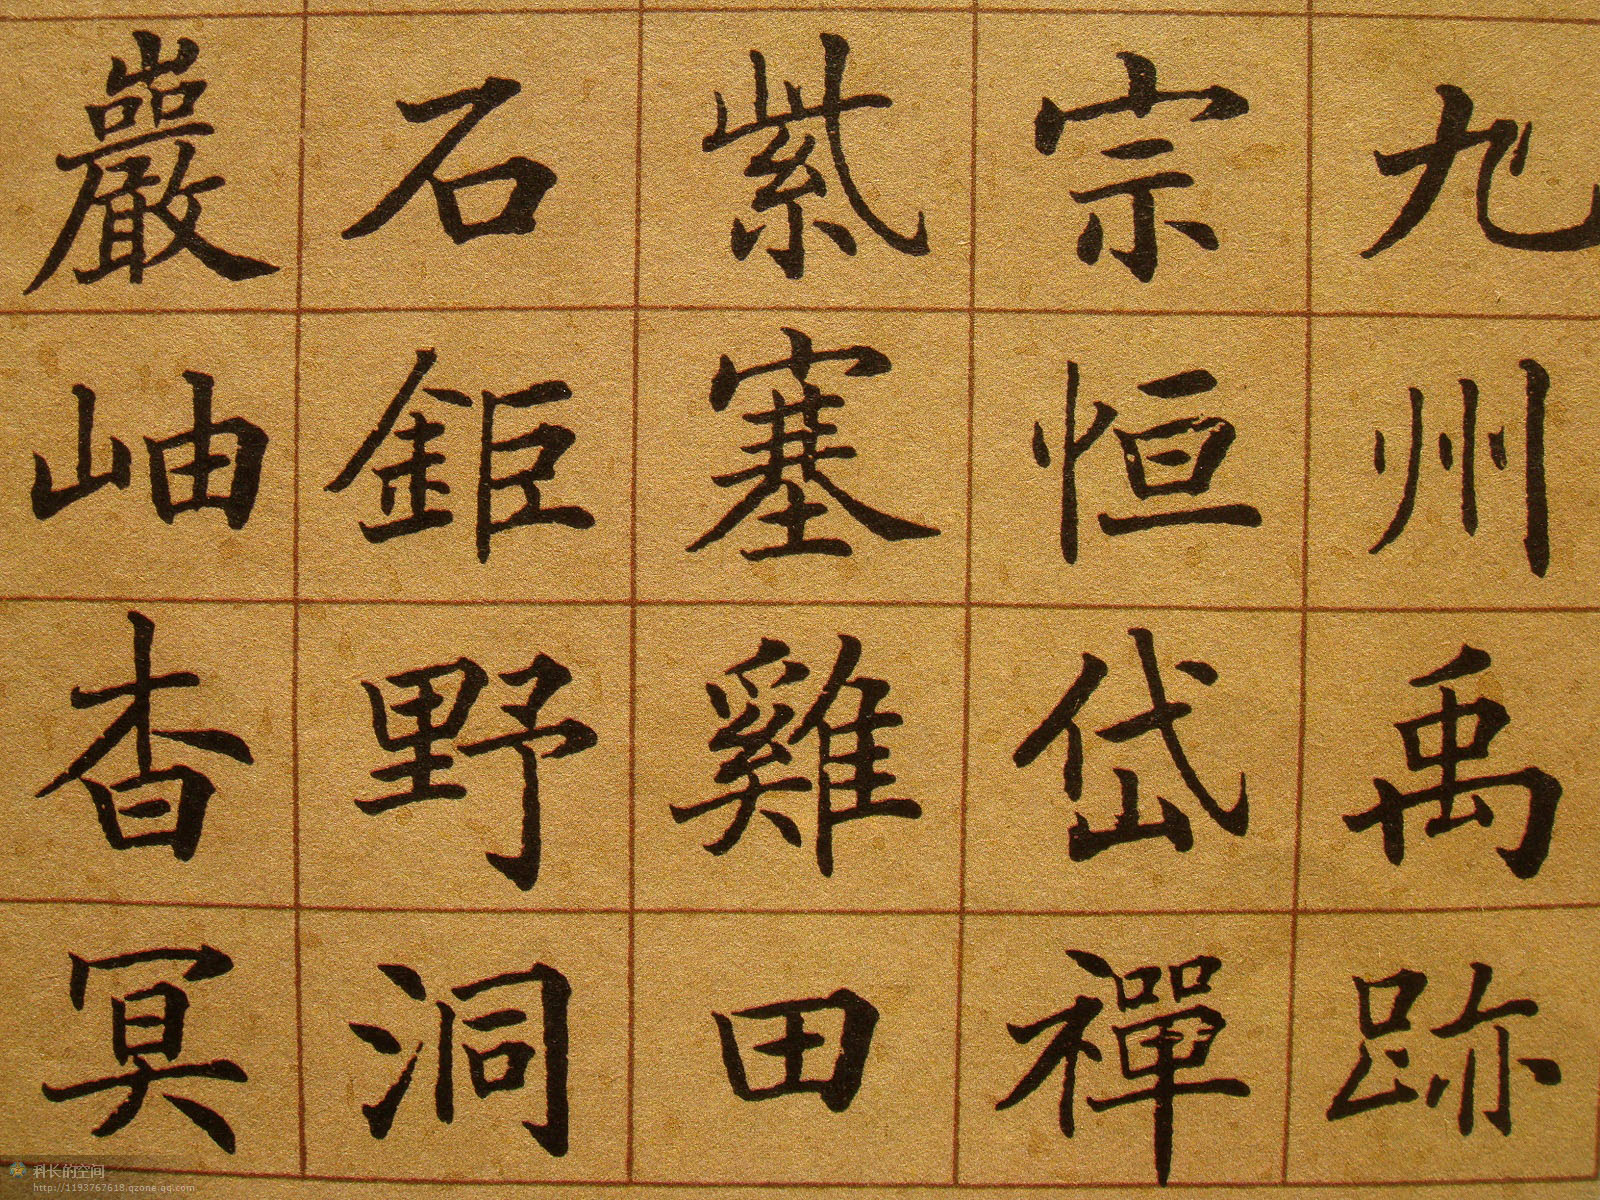 九州禹跡
宗恒岱禪
紫塞雞田
石鉅野洞
巖岫杳冥
科长的空间
http://1193767618.qzone.qq.com